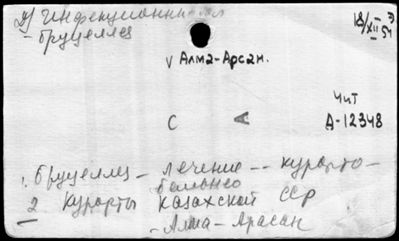 инфекционный
- бруцеллез
18/XII 54
v Алма-Арсан.
Чит
С А А-12348
1. Бруцеллез - лечение -- курорто-
бальнео
2 Курорты Казахской ССР
- Алма-Арасан